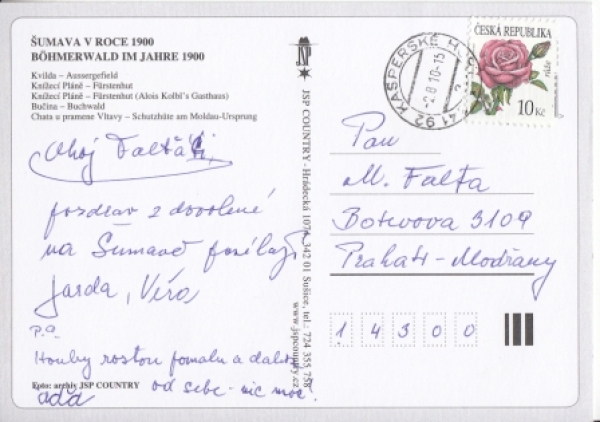 ŠUMAVA V ROCE 1900
BÖHMERWALD IM JAHRE 1900
Kvilda – Aussergefield
Knížecí Pláně – Fürstenhut
Knížecí Pláně – Fürstenhut (Alois Kolbl's Gasthaus)
Bučina – Buchwald
Chata u pramene Vltavy – Schutzhäte am Moldau-Ursprung
Ahoj Falťáci,
pozdrav z dovolené
na Šumavě posílají
Jarda, Věra
P.S.
Houby rostou pomalu a daleko
od sebe - nic moc!
Foto: archiv JSP COUNTRY
JSP
JSP COUNTRY - Hrádecká 1074, 342 01 Sušice, tel.: 724 355 758
www.jspcountry.cz
KAŠPERSKÉ HORY
-2.8.10-15
34192
ČESKÁ REPUBLIKA
růže
10 Kč
Pan
M. Falta
Botevova 3109
Praha 4 - Modřany
14300